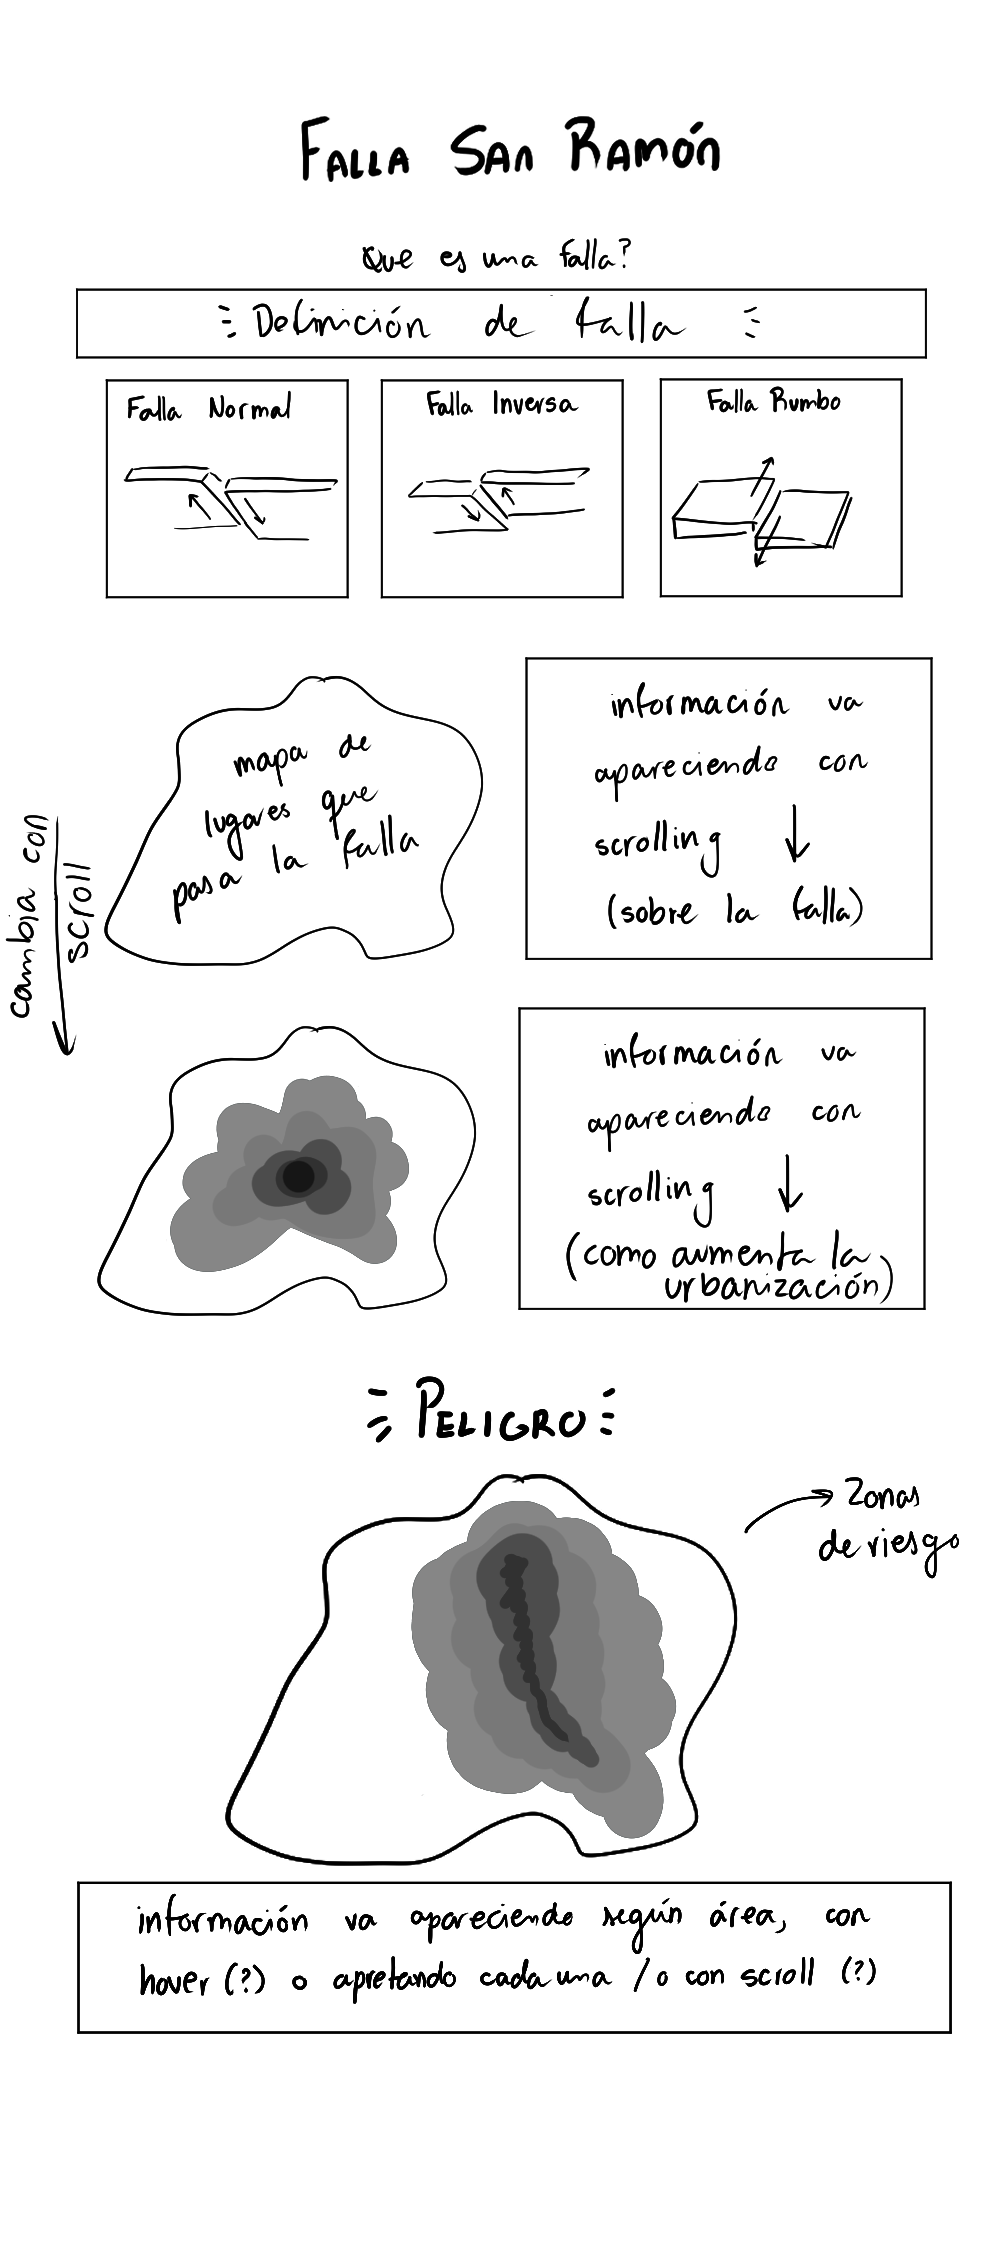 FALLA SAN RAMÓN
Que es una falla?
Definición de falla
Falla Normal
Falla Inversa
Falla Rumbo
mapa de
lugares que
pasa la falla
información va
apareciendo con
scrolling
(sobre la falla)
cambia con
scroll
información va
apareciendo con
scrolling
(como aumenta la
urbanización)
PELIGRO
Zonas
de riesgo
información va apareciendo según área, con
hover (?) o apretando cada una / o con scroll (?)